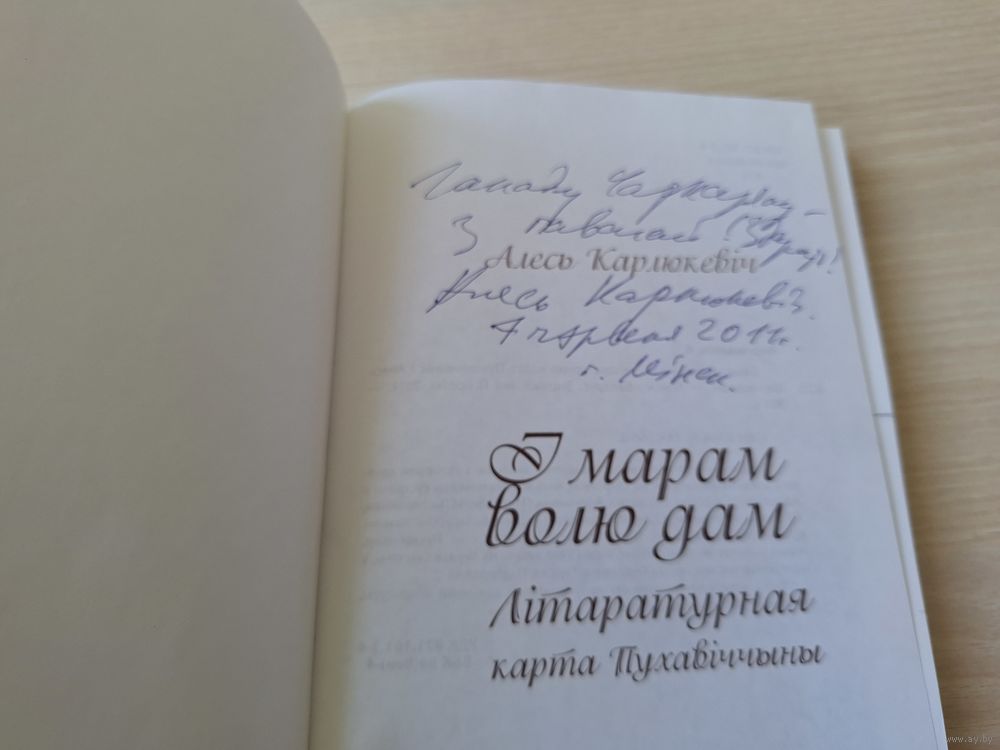 З павагай
Алесь Карлюкевіч
Алесь Карлюкевіч.
7 чэрвеня 2011 г.
г. Мінск.
І марам
волю дам
Літаратурная
карта Пухавіччыны
www.ay.by